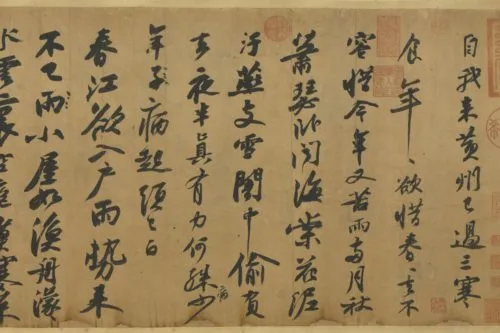 自我來黃州已過三寒
食年〻欲惜春〻去不
容惜今年又苦雨兩月秋
蕭瑟卧聞海棠花泥
汙燕支雪闇中偷負
去夜半真有力何殊少病
年子病起須已白
春江欲入戶雨勢來
不已雨小屋如漁舟濛
水雲裏空庖煮寒菜